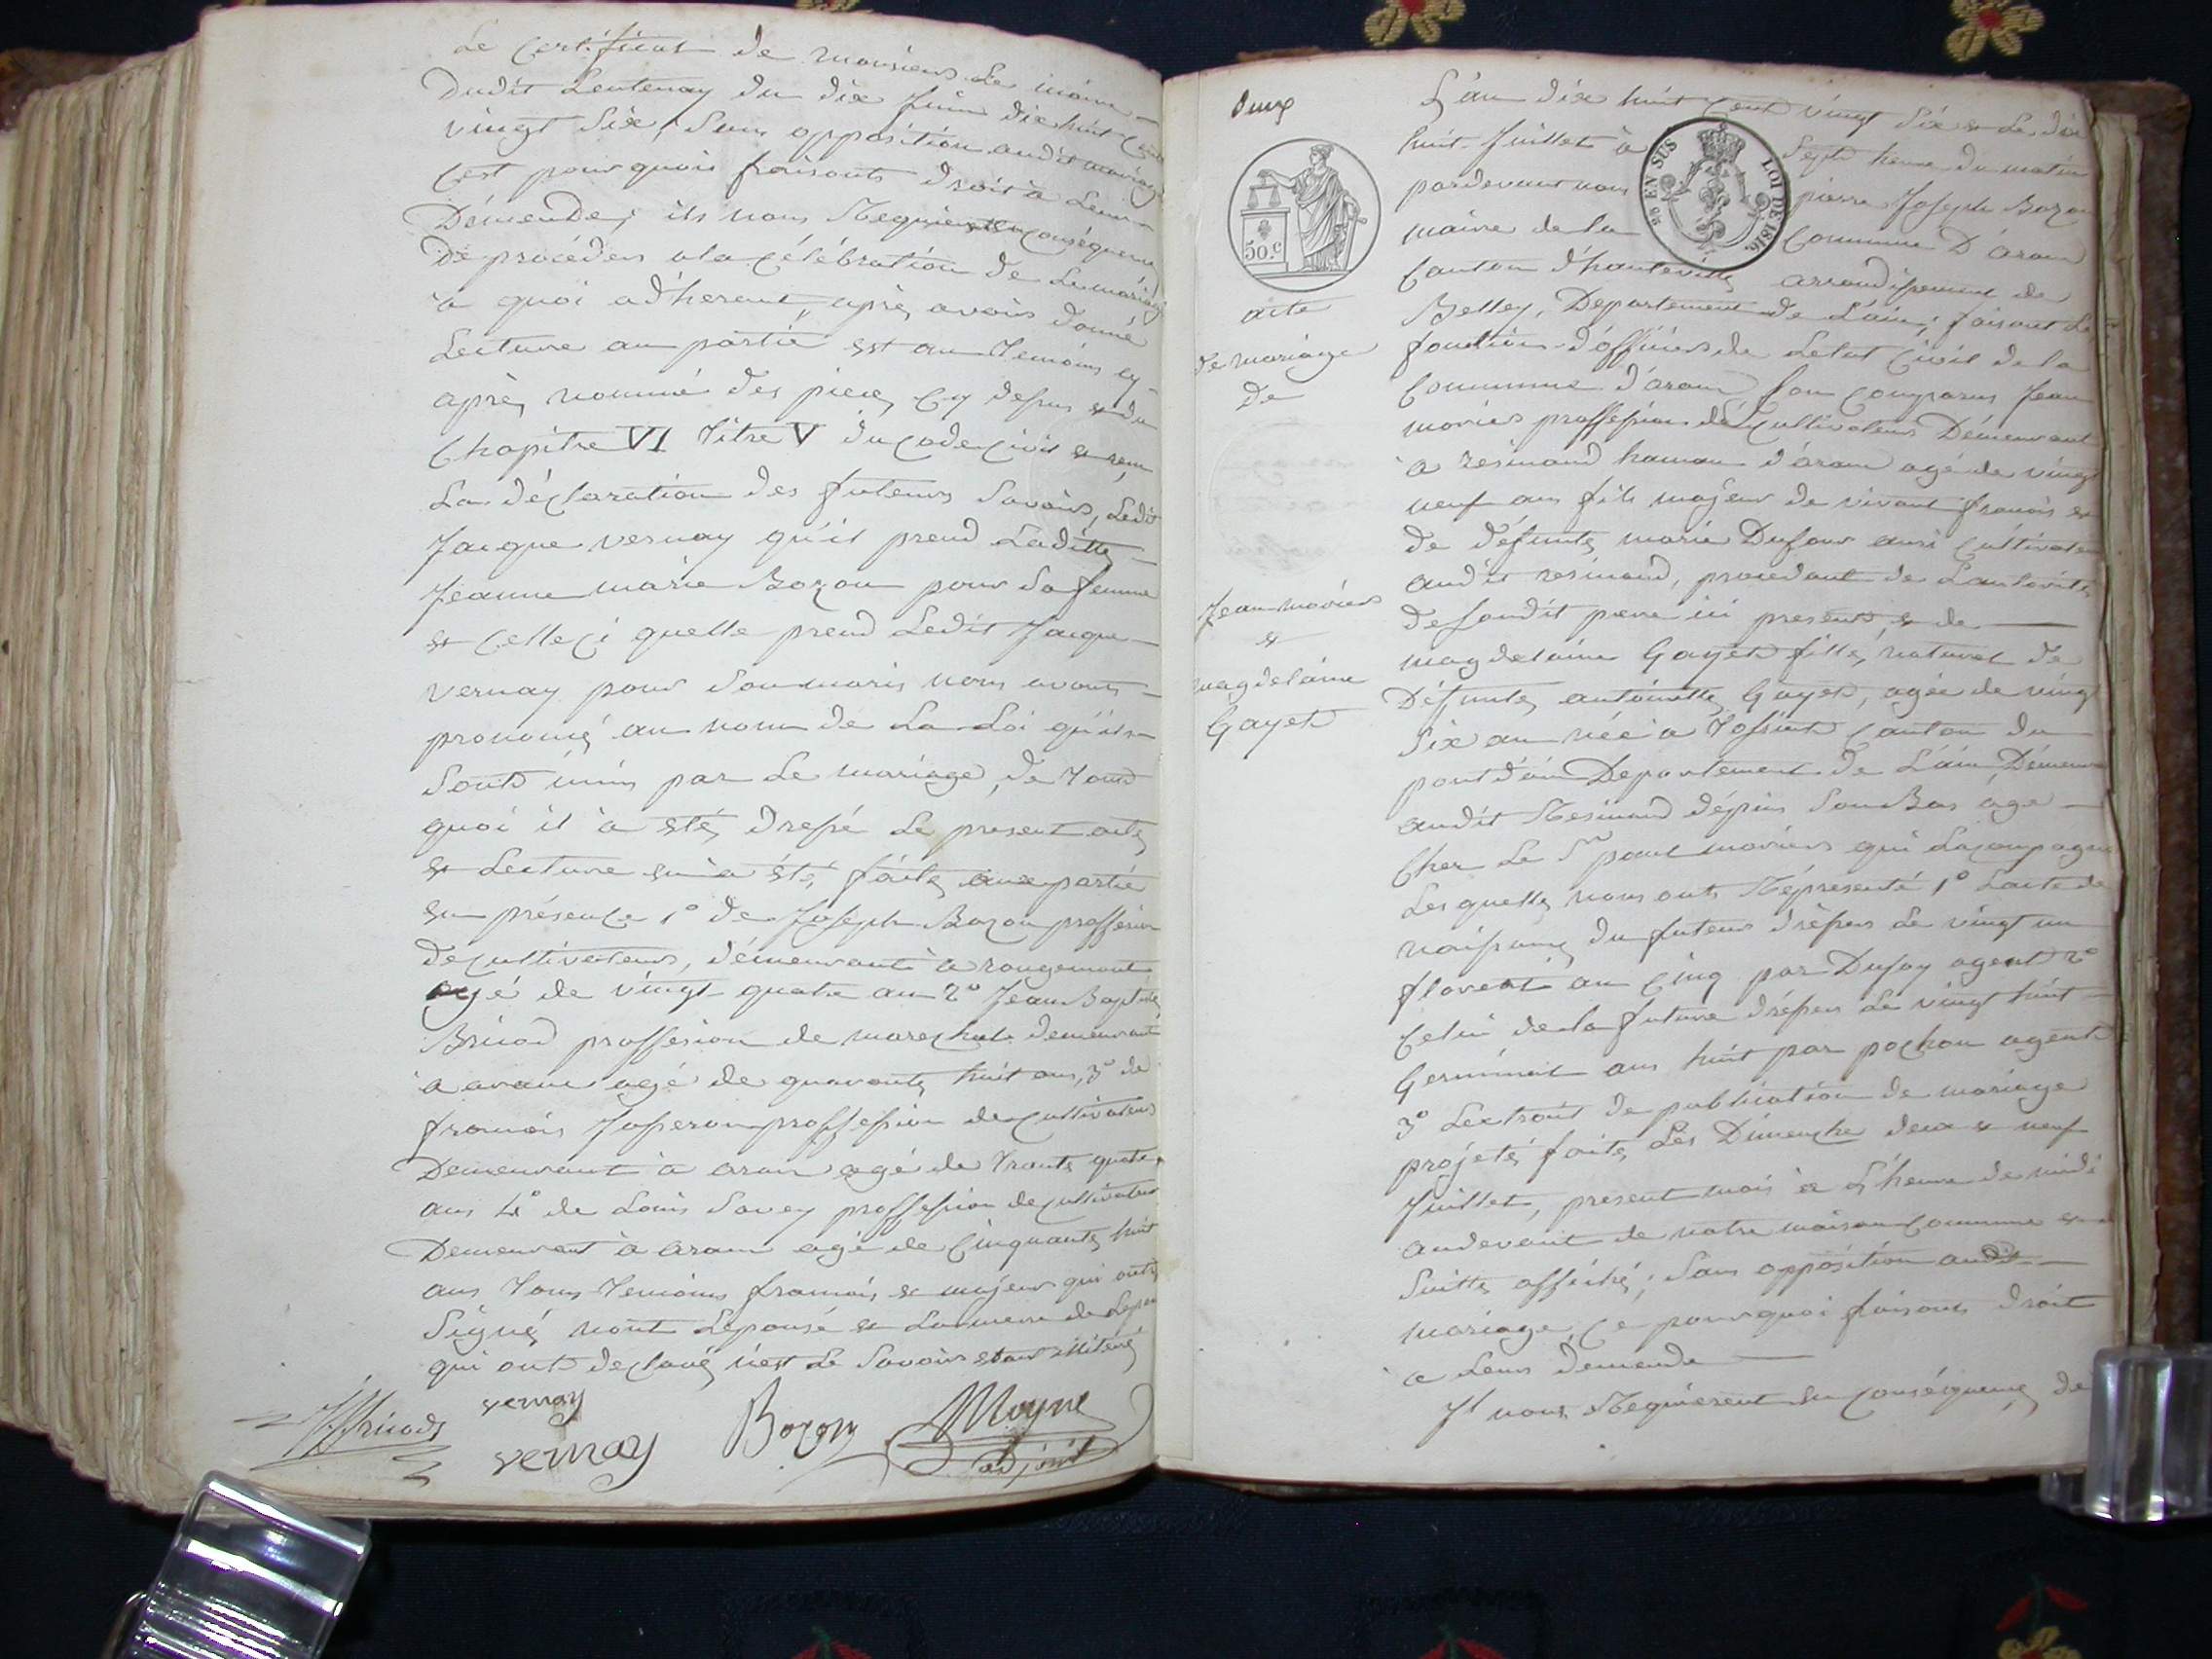 Le Certificat de monsieur Le maire
Dudit Lentenay du dix Juin dix huit Cent
vingt Six, Sans opposition audit mariage
C'est pourquoi faisants droit à Leur
Démende; ils nous Requierent en Conséquence
De procéder a la Célébration de Le mariage
à quoi adherant, après avoir donné
Lecture au partie est au Temoins cy
après nommé des pieces Cy desus & du
Chapitre VI Titre V du Code Civil & reçu
La déclaration des futeurs Savoir, Ledit
Jacque vernay qu'il prend Laditte
Jeanne marie Bozon pour Sa femme
& Celle Ci quelle prend Ledit Jacque
vernay pour Son maris nous avons
prononcé au nom de La Loi qu'ils
Sont unis par Le mariage, de Tout
quoi il a été dressé Le present acte
& Lecture en a été faite aux partie
en présence 1° de Joseph Bozon proffesion
de Cultivateur, démeurant à rougemont
agé de vingt quatre an 2° Jean Baptiste
Bricod proffesion de marechal demeurant
a aranc agé de quarante huit ans, 3° de
francois Josperon proffession de Cultivateur
Demeurant à aranc agé de Trante quatre
ans 4° de Louis Savey proffession de Cultivateur
Demeurent à aranc agé de Cinquante huit
ans Tous Temoins francais & majeur qui onts
Signé, nont Lepousé & La mere de Lepou
qui ont declaré n'est Le Savoir etant illiteré
JBricod
vernay
vernay
Bozon
Moyne
adjoint
Deux
50.c
acte
de mariage
de
Jean moriers
&
magdelaine
Gayet
EN SUS
LOI DE 1816.
L'an dix huit Cent vingt Six & Le dix
huit Juillet à Sept heure du matin
pardevant nous pierre Joseph Bozon
maire de la Commune D'aranc
Canton d'hauteville arrondissement de
Belley, Departement de L'ain; faisant Le
fonction d'officier de Letat Civil de la
Commune d'aranc Son Comparus Jean
moriers proffession de Cultivateur Démeurant
à resinand hamau d'aranc agé de vingt
neuf ans fils majeur de vivant francois &
de défunte marie Dufour aussi Cultivateur
audit resinand, procedant de Lautorité
de Sondit pere ici present, & de
magdelaine Gayet fille naturel de
Défunte antoinette Gayet, agée de vingt
Six an née a Jossieat Canton du
pont d'ain Departement de L'ain, Démeurant
audit Resinand dépuis Son Bas age
Cher Le Sr paul moriers qui Lacompagne
Lesquelle nous onts Répresenté 1° Lacte de
naissance du futeur drésser Le vingt un
floreat an Cinq par Dufay agent 2°
Celui de la future drésser Le vingt huit
Germinal ans huit par pochon agent
3° Lextrait de publication de mariage
projeté faite Les Dimenche deux & neuf
Juillet, present mois à L'heure de midi
audevant de notre maison Commune &
Suitte affiché; Sans opposition audit
mariage, Ce pourquoi faisants droit
à Leur demende
Il nous Requierent en Conséquence de